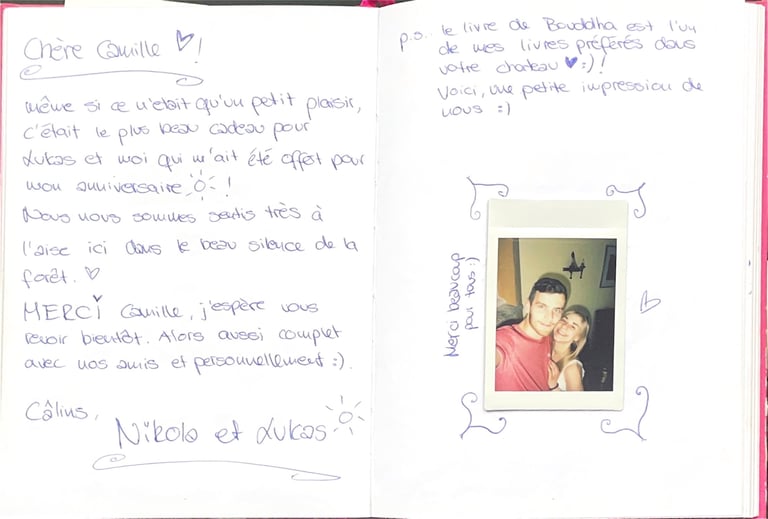 Chère Camille ♡!
même si ce n'était qu'un petit plaisir,
c'était le plus beau cadeau pour
Lukas et moi qui m'ait été offert pour
mon anniversaire !
Nous nous sommes sentis très à
l'aise ici dans le beau silence de la
forêt. ♡
MERCi Camille, j'espère vous
revoir bientôt. Alors aussi complet
avec nos amis et personnellement :).
Câlins,
Nikola et Lukas
p.s.: le livre de Bouddha est l'un
de mes livres préférés dans
votre chateau ♥ :)!
Voici, une petite impression de
nous :)
Merci beaucoup
pour tous :)